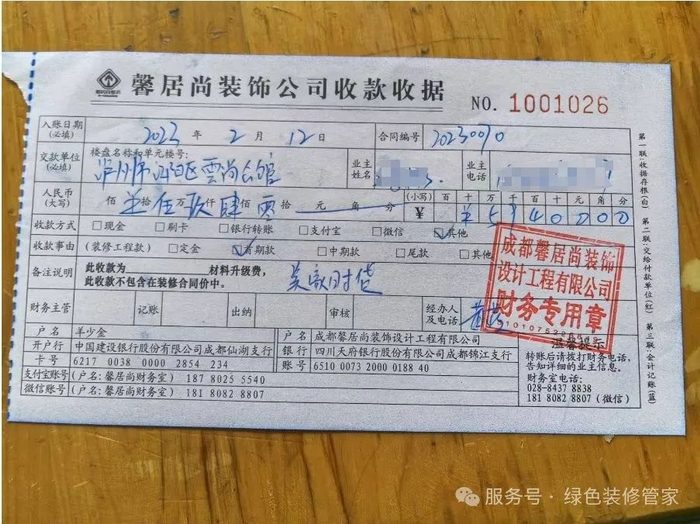 馨居尚装饰公司收款收据
NO. 1001026
入账日期（必填） 2023 年 2 月 12 日 合同编号 2023090
交款单位（必填） 楼盘名称和单元楼号： 业主姓名 业主电话
人民币（大写） 佰 拾 万 仟 佰 肆 零 拾 元 角 分 （小写）¥ 百 十 万 千 百 十 元 角 分
收款方式 □现金 □刷卡 □银行转账 □支付宝 □微信 ☑其他
收款事由 （装修工程款） □定金 ☑首期款 □中期款 □尾款 □其他
备注说明 此收款为 材料升级费，
此收款不包含在装修合同价中。
成都馨居尚装饰
设计工程有限公司
财务专用章
财务主管 记账 出纳 审核 经办人及电话
户名 羊少金 户名 成都馨居尚装饰设计工程有限公司
开户行 中国建设银行股份有限公司成都仙湖支行 银行 四川天府银行股份有限公司成都锦江支行
卡号 6217 0038 0000 2854 234 账号 6510 0073 2000 0188 40
支付宝账号 (户名：馨居尚财务室) 187 8025 5540
微信账号 (户名：馨居尚财务室) 181 8082 8807
温馨提示
转账后请拨打财务电话，
告知详细的业主信息。
财务室电话：
028-8437 8838
181 8082 8807（微信）
第一联：收据存根(白) 第二联：交给付款单位(红) 第三联：会计记账(蓝)
服务号 · 绿色装修管家